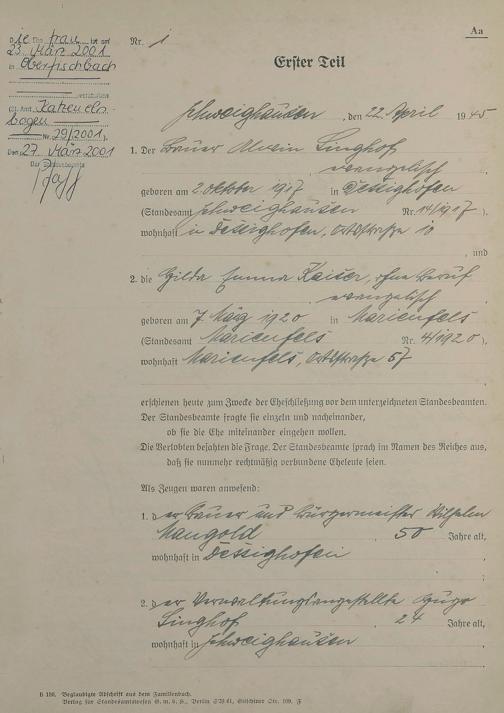 Aa
Die Frau ist am
23. März 2001
in Oberfischbach
verstorben
(St. Amt Katzeneln-
bogen
Nr. 29/2001).
Den 27. März 2001
Der Standesbeamte
Nr. 1
Erster Teil
Schweighausen, den 22. April 1945
1. Der Bauer Alwin Singhof
, evangelisch
geboren am 2. Oktober 1917 in Dessighofen
(Standesamt Schweighausen Nr. 14/1917),
wohnhaft in Dessighofen, Ortsstraße 10
, und
2. die Gilda Emma Kaiser, ohne Beruf
, evangelisch
geboren am 7. März 1920 in Marienfels
(Standesamt Marienfels Nr. 4/1920),
wohnhaft Marienfels, Ortsstraße 57
erschienen heute zum Zwecke der Eheschließung vor dem unterzeichneten Standesbeamten.
Der Standesbeamte fragte sie einzeln und nacheinander,
ob sie die Ehe miteinander eingehen wollen.
Die Verlobten bejahten die Frage. Der Standesbeamte sprach im Namen des Reiches aus,
daß sie nunmehr rechtmäßig verbundene Eheleute seien.
Als Zeugen waren anwesend:
1. der Bauer und Bürgermeister Wilhelm
Mangold, 50 Jahre alt,
wohnhaft in Dessighofen
2. der Verwaltungsangestellte
Singhof, 24 Jahre alt,
wohnhaft in Schweighausen
B 186. Beglaubigte Abschrift aus dem Familienbuch.
Verlag für Standesamtswesen G. m. b. H., Berlin SW 61, Gitschiner Str. 109. F